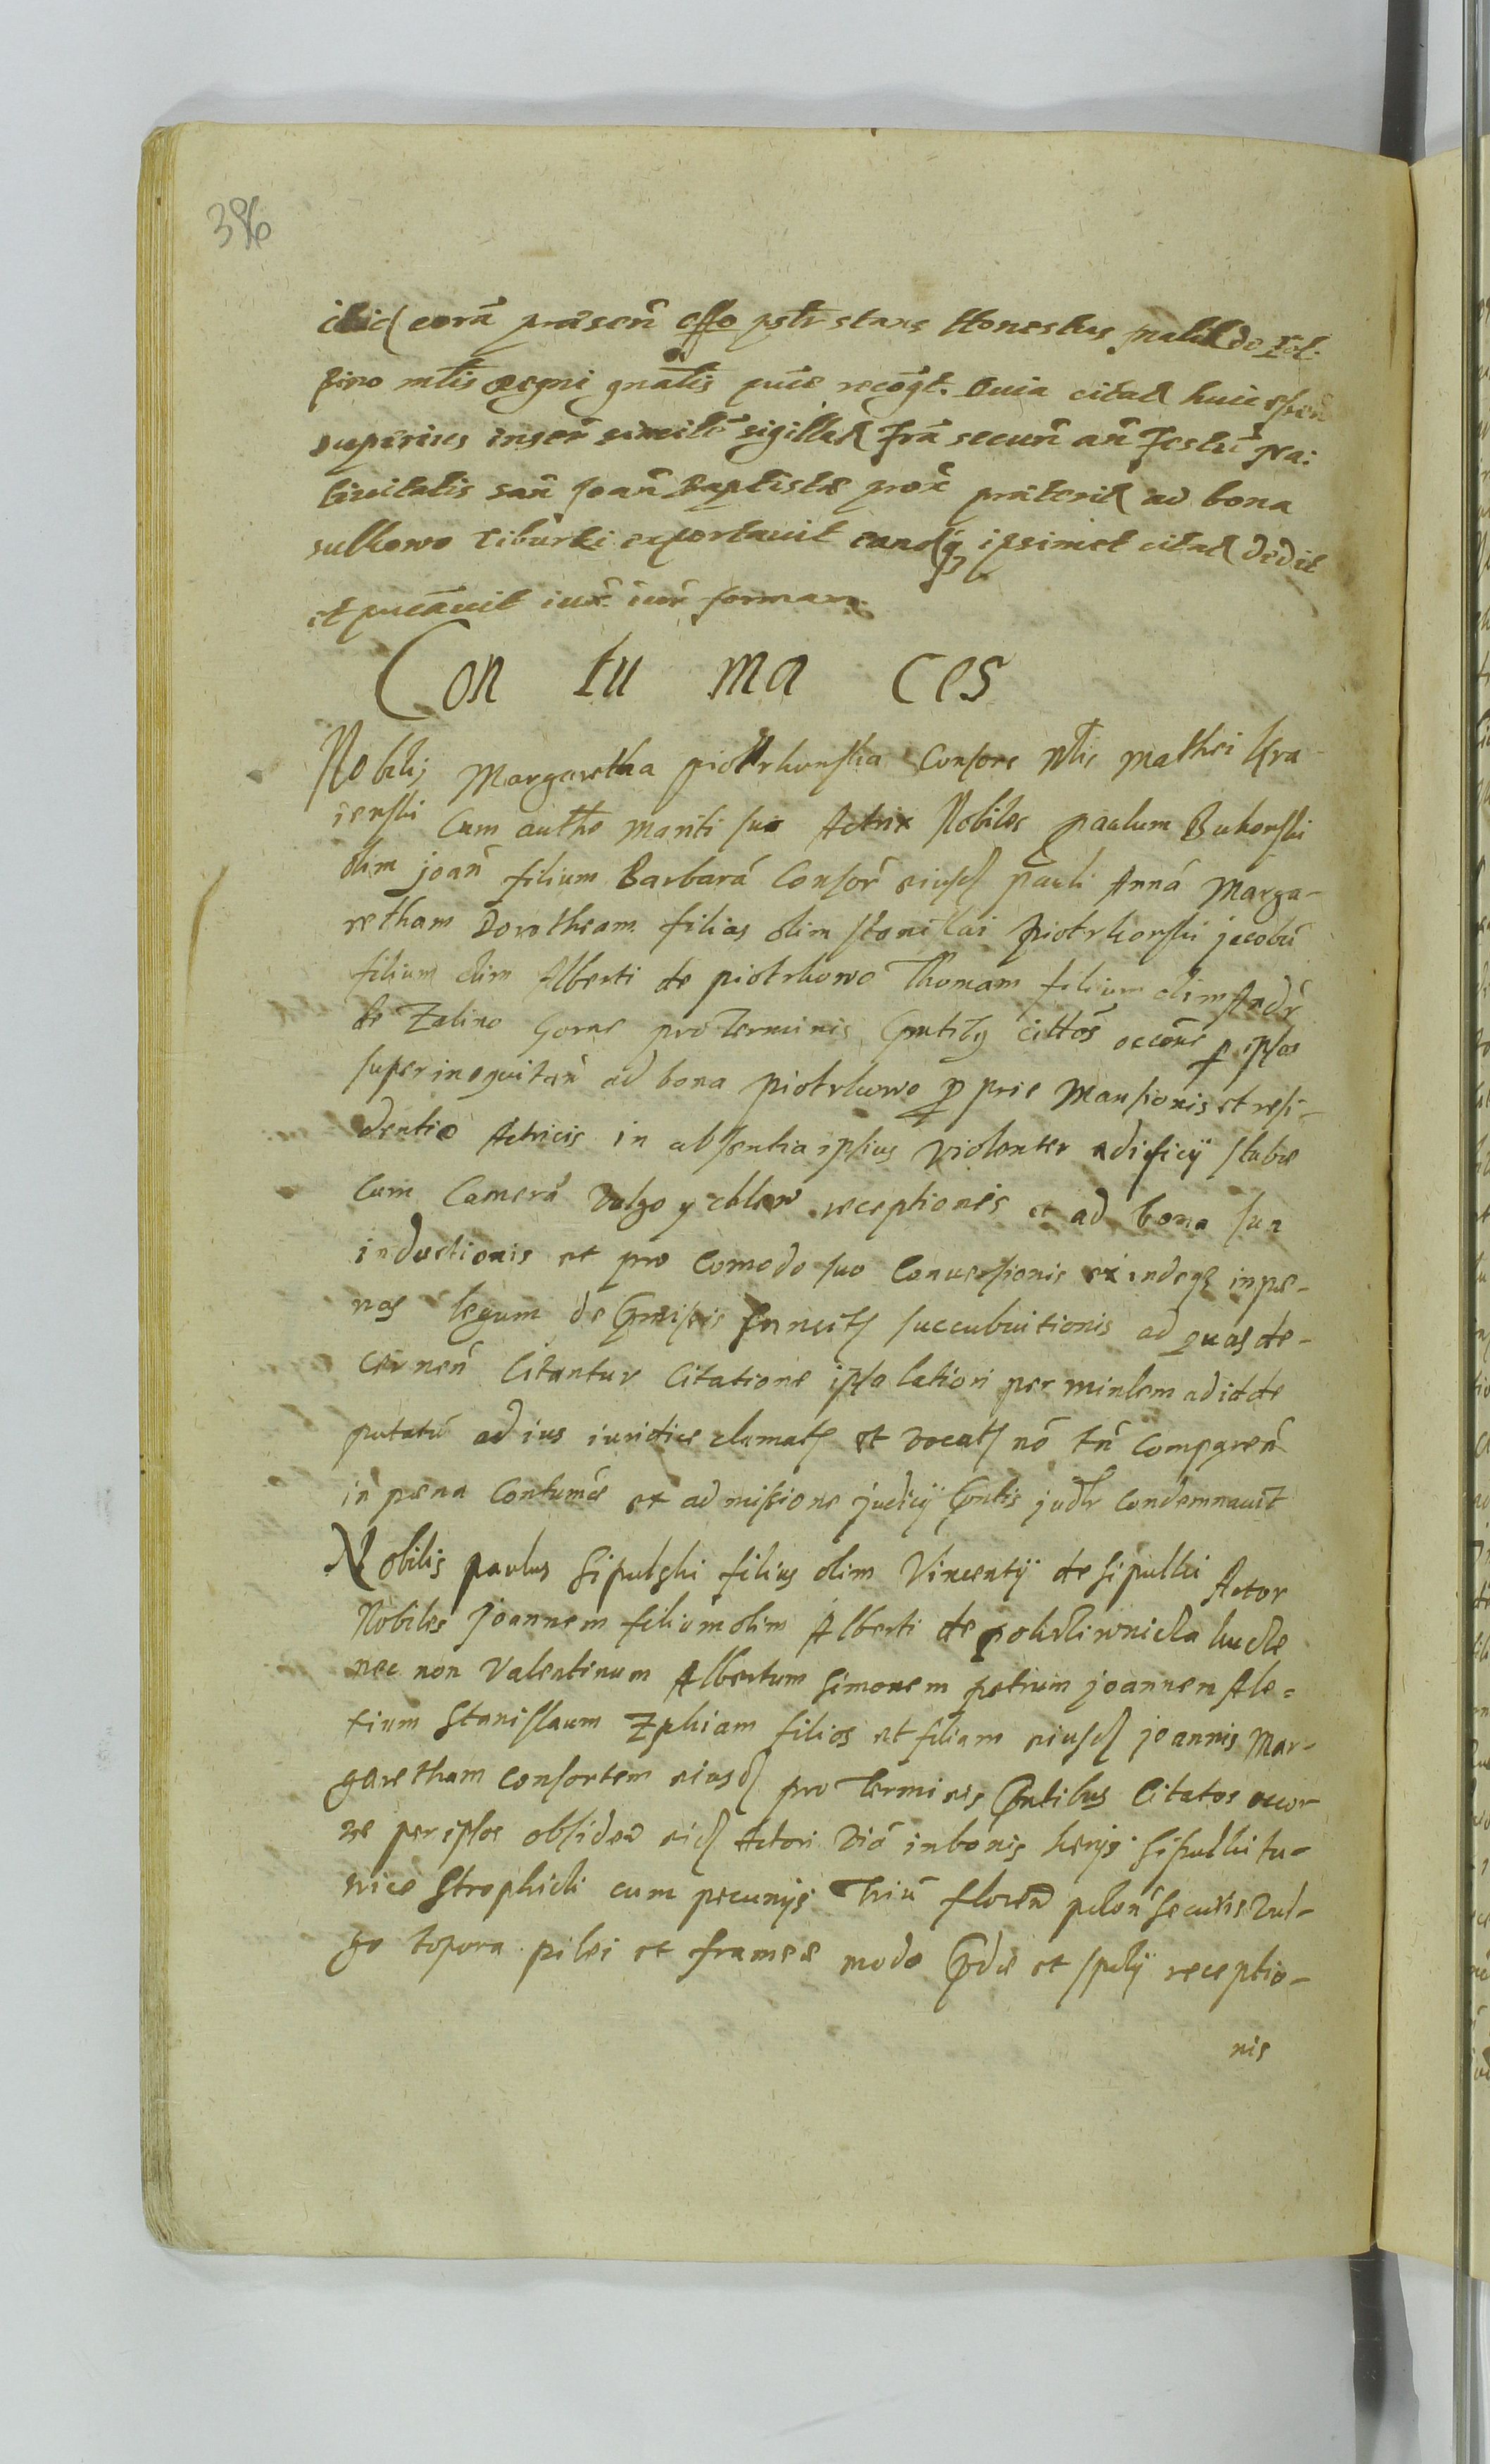 396
ibid corā präsen̄ offo pstr stans Honestus
mtis Regni gnalis puce recogt. Quia citad huic
superius inser̄ simile sigillad fra secun̄ an̄ Festū Na:
tivitatis san̄ Joan̄ Baptistæ prox̄ præterid ad bona
sulkowo Ciburki exportavit eandq ipsimet citad dedit
et pucāvit iux̄ iur̄ forman
Con tu ma ces
Nobilis Margaretha piotrkowska Consors Nlis Mathei Kra
iewski Cum autho mariti sui Actrix Nobiles paulum Bukowski
olim joan̄ filium Barbarā Consor̄ eiusd pauli Annā Marga-
retham Dorotheam filias olim Stanislai Piotrkowski jacobū
filium olim Alberti de piotrkowo Thomam filium olim Andr̄
de Zalino Gorne pro Terminis cittos occone p ipsos
superinequitan̄ ad bona Piotrkowo p prie Mansionis et resi-
dentie Actricis in absentia ipsius violenter ædificij stubæ
Cum Camerā vulgo receptionis et ad bona sua
inductionis et pro Comodo suo Conversionis exindeq in pæ-
nas legum de succubuitionis ad quas de-
cernen̄ Citantur Citatione ipsa latiori per minlem ad id de
putatū ad ius iuridice clamats et vocats nō tn̄ comparen̄
in pæna Contumæ et admissione judicij judtr condemnavit
Nobilis paulus Sipulski filius olim Vincentij de Sipulki Actor
Nobiles Joannem filium olim Alberti de
nec non Valentinum Albertum Simonem petrum joannem Ale=
xium Stanislaum Zphiam filios et filiam eiusd joannis Mar-
garetham consortem eiusd pro Terminis Citatos occor
ne per ipsos obsiden̄ eid Actori viā in bonis Sipulki tu-
nicæ cum pecunijs Triū floren̄ polon̄ Securis Vul-
go topora pilei et frameæ modo et spolij receptio-
nis